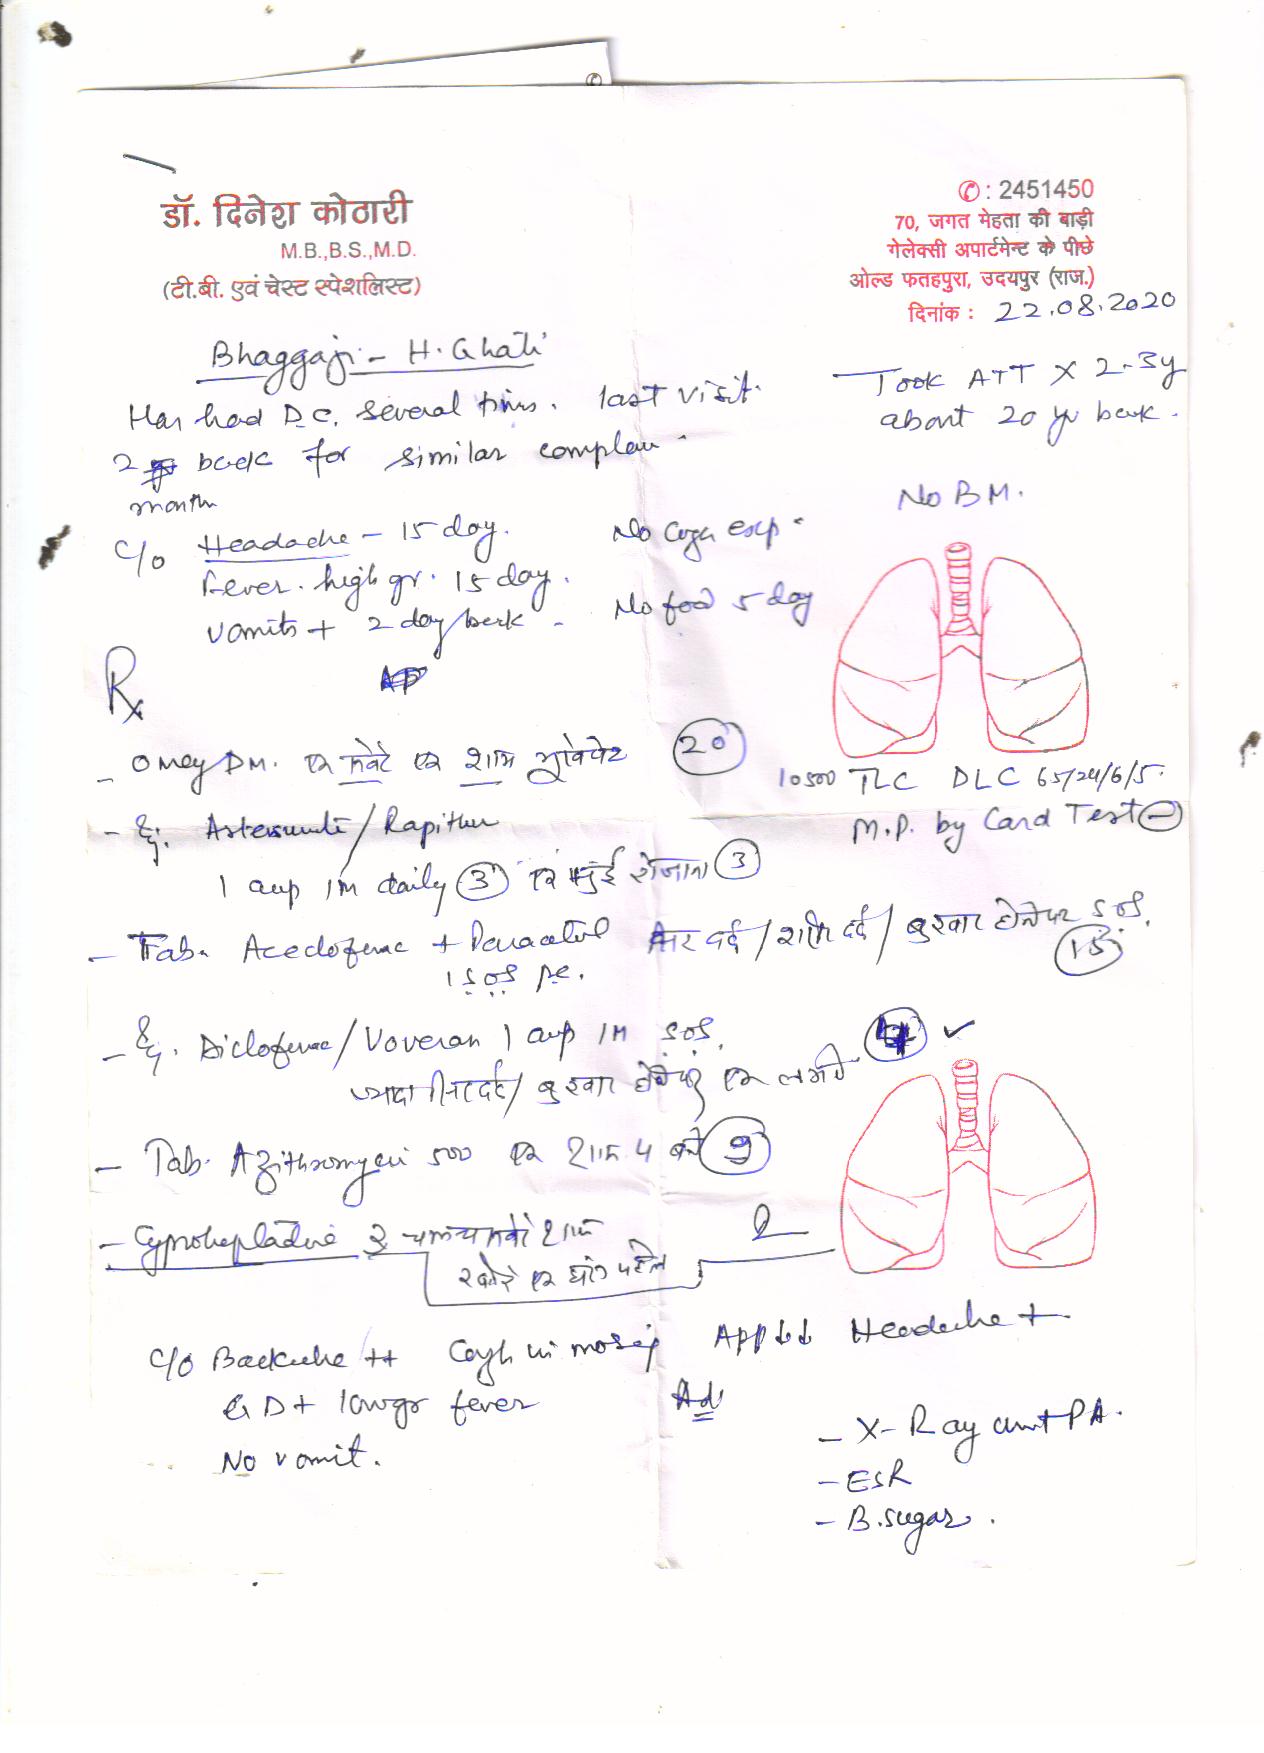 डॉ. दिनेश कोठारी
M.B.,B.S.,M.D.
(टी.बी. एवं चेस्ट स्पेशलिस्ट)
✆: 2451450
70, जगत मेहता की बाड़ी
गेलेक्सी अपार्टमेन्ट के पीछे
ओल्ड फतहपुरा, उदयपुर (राज.)
दिनांक : 22.08.2020
Bhaggaji - H. Ghati
Has had D.C. several times. last visit.
2 back for similar
month
Took ATT X 2-3y
about 20 yr back.
No BM.
C/o Headache - 15 day.
Fever. high gr. 15 day.
Vomits + 2 day back.
No Cough exp.
No food 5 day
Rx
- Omey DM. एक सवेरे एक शाम 20
10500 TLC DLC 65/24/6/5.
M.P. by Card Test -
- Inj. /
1 amp IM daily 3 एक सुई रोजाना 3
- Tab. Aceclofenac + Paracetol दर्द / दर्द / बुखार होने पर SOS.
1 SOS 15
- Inj. Diclofenac / Voveran 1 amp IM SOS. ✓
ज्यादा सिरदर्द / बुखार होने पर एक लगावें
- Tab. Azithromycin 500 एक शाम 4 बजे 9
- Cyproheptadine 2 चम्मच सवेरे शाम
एक घंटे पहले
C/o Backache ++ Cough in App ↓↓ Headache +
GD + low gr fever
No vomit.
Ad
- X-Ray PA.
- ESR
- B. sugar.